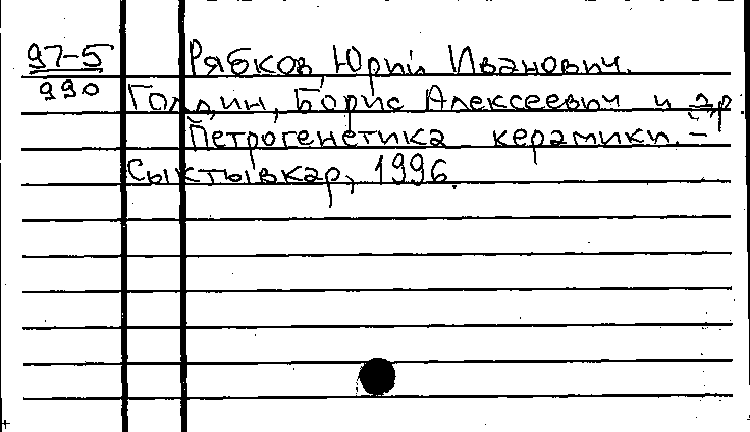 97-5
990
Рябков Юрий Иванович.
Голдин, Борис Алексеевич и др.
Петрогенетика керамики. –
Сыктывкар, 1996.